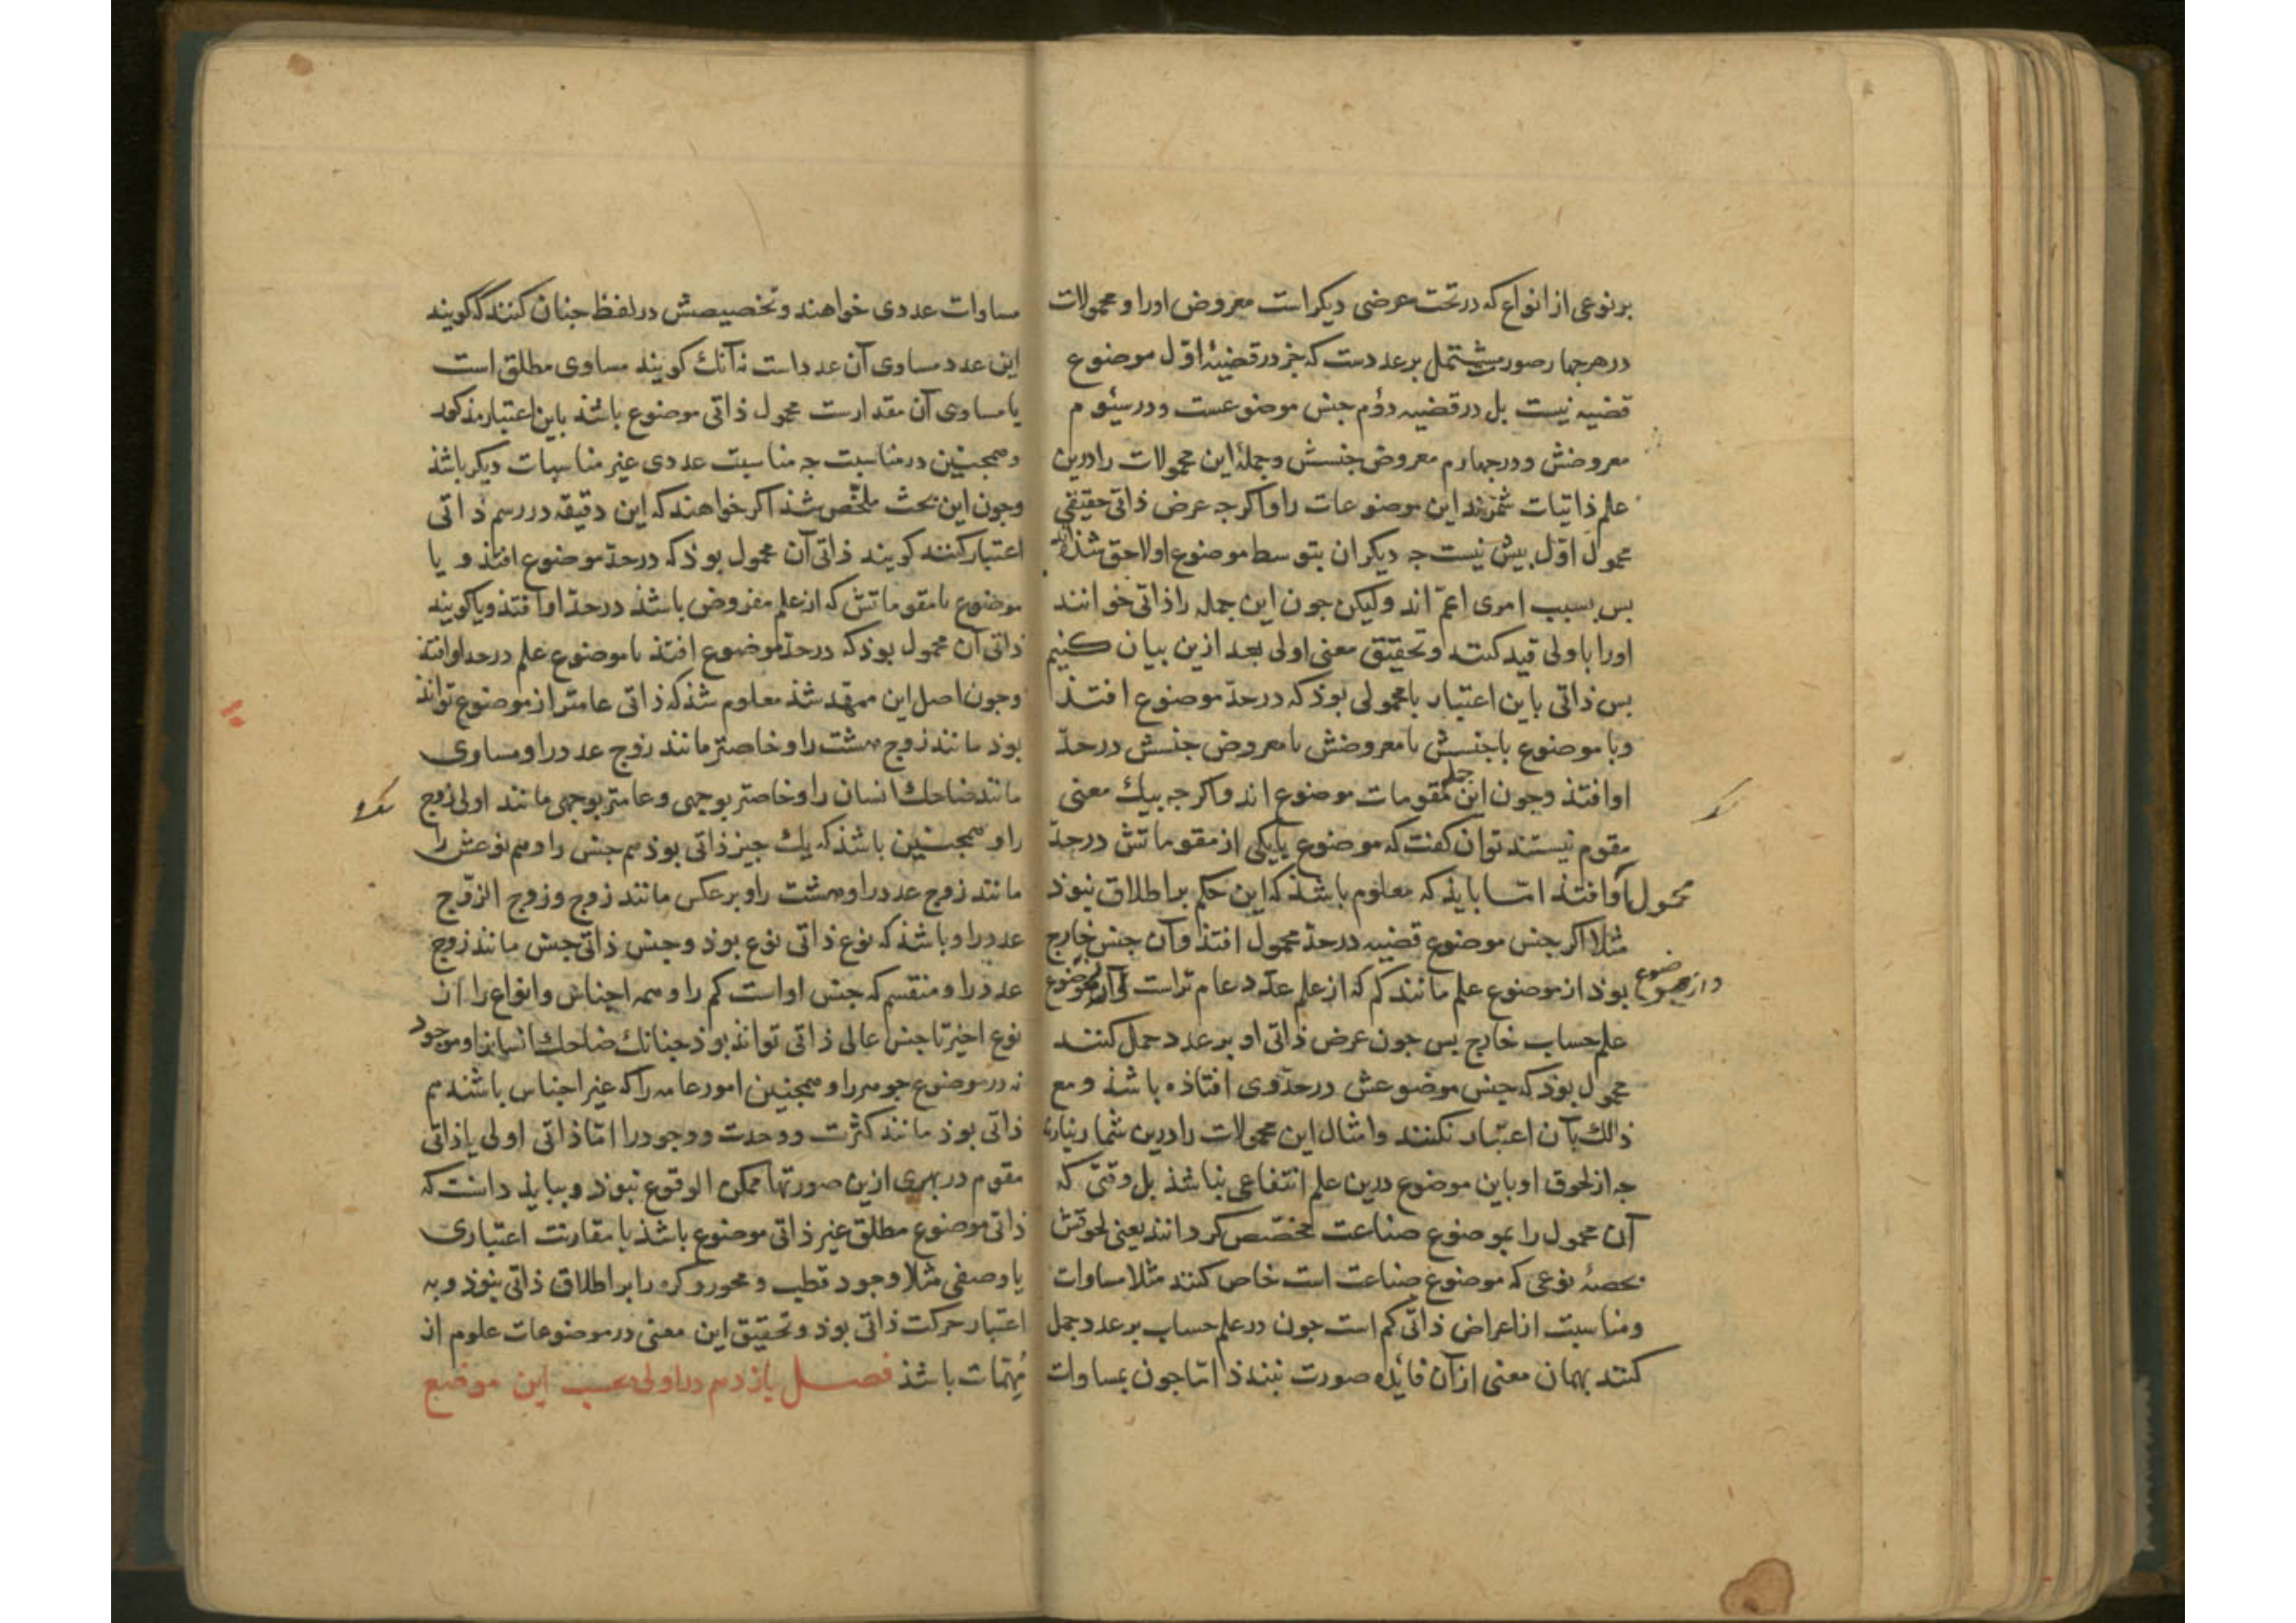 بر نوعی از انواع که در تحت عرضی دیکر است معروض اورا و محمولات
در هر جهار صورت مشتمل بر عددست که جز در قضیهٔ اوّل موضوع
قضیه نیست بل در قضیه دوّم جنس موضوعست و در سیُوم
معروضش و در جهارم معروض جنسش و جملهٔ این محمولات را درین
علم ذاتیات شمرند این موضوعات را و اکرجه عرض ذاتی حقیقی
محمول اوّل بیش نیست جه دیکران بتوسط موضوع اولاحق شذه‌اند
بس بسبب امری اعمّ اند ولیکن جون این جمله را ذاتی خوانند
اورا باولی قید کنند و تحقیق معنی اولی بعد ازین بیان کنیم
بس ذاتی باین اعتبار یا محمولی بوذ که در حدّ موضوع افتذ
و یا موضوع یا جنسش یا معروضش یا معروض جنسش در حدّ
او افتذ و جون این جمله مقومات موضوع اند و اکرجه بیك معنی
مقوم نیستند توان کفت که موضوع یا یکی از مقوماتش در حدّ
محمول او افتذ امّا بایذ که معلوم باشذ که این حکم بر اطلاق نبوذ
مثلا اکر جنس موضوع قضیه در حدّ محمول افتذ و آن جنس خارج
بوذ از موضوع علم مانند کم که از علم عدد عام تر است و از موضوع
علم حساب خارج بس جون عرض ذاتی او بر عدد حمل کنند
محمول بوذ که جنس موضوعش در حدّ وی افتاذه باشذ و مع
ذلك بآن اعتبار نکنند و امثال این محمولات را درین شمار نیارند
جه از لحوق او باین موضوع درین علم انتفاعی نباشذ بل وقتی که
آن محمول را بموضوع صناعت مخصّص کردانند یعنی لحوقش
بحصهٔ نوعی که موضوع صناعت است خاص کنند مثلا مساوات
و مناسبت از اعراض ذاتی کم است جون در علم حساب بر عدد حمل
کنند بهمان معنی از آن فائده صورت نبندذ امّا جون بمساوات
مساوات عددی خواهند و تخصیصش در لفظ جنان کنند که کویند
این عدد مساوی آن عدد است نه آنك کویند مساوی مطلق است
یا مساوی آن مقدارست محمول ذاتی موضوع باشذ باین اعتبار مذکور
و همجنین در مناسبت جه مناسبت عددی غیر مناسبات دیکر باشذ
و جون این بحث ملخّص شذ اکر خواهند که این دقیقه در رسم ذاتی
اعتبار کنند کویند ذاتی آن محمول بوذ که در حدّ موضوع افتذ و یا
موضوع یا مقوماتش که از علم مفروض باشذ در حدّ او افتذ و یا کویند
ذاتی آن محمول بوذ که در حدّ موضوع افتذ یا موضوع علم در حد او افتذ
و جون اصل این ممهّد شذ معلوم شذ که ذاتی عامتر از موضوع تواند
بوذ مانند زوج هشت را و خاصتر مانند زوج عدد را و مساوی
مانند ضاحك انسان را و خاصتر بوجهی و عامتر بوجهی مانند اولی زوج
را و همجنین باشذ که یك جیز ذاتی بوذ هم جنس را و هم نوعش را
مانند زوج عدد را و هشت را و بر عکس مانند زوج و زوج الزّوج
عدد را و باشذ که نوع ذاتی نوع بوذ و جنس ذاتی جنس مانند زوج
عدد را و منقسم که جنس او است کم را و همه اجناس و انواع را از
نوع اخیر تا جنس عالی ذاتی تواند بوذ جنانك ضاحك انسانرا و موجود
نه در موضوع جوهر را و همجنین امور عامه را که غیر اجناس باشند هم
ذاتی بوذ مانند کثرت و وحدت و وجود را امّا ذاتی اولی یا ذاتی
مقوم در بهری ازین صورتها ممکن الوقوع نبوذ و ببایذ دانست که
ذاتی موضوع مطلق غیر ذاتی موضوع باشذ با مقارنت اعتباری
یا وصفی مثلا وجود قطب و محور و کره را بر اطلاق ذاتی نبوذ و به
اعتبار حرکت ذاتی بوذ و تحقیق این معنی در موضوعات علوم از
مُهِمّات باشذ فصل یازدهم در اولی بحسب این موضع